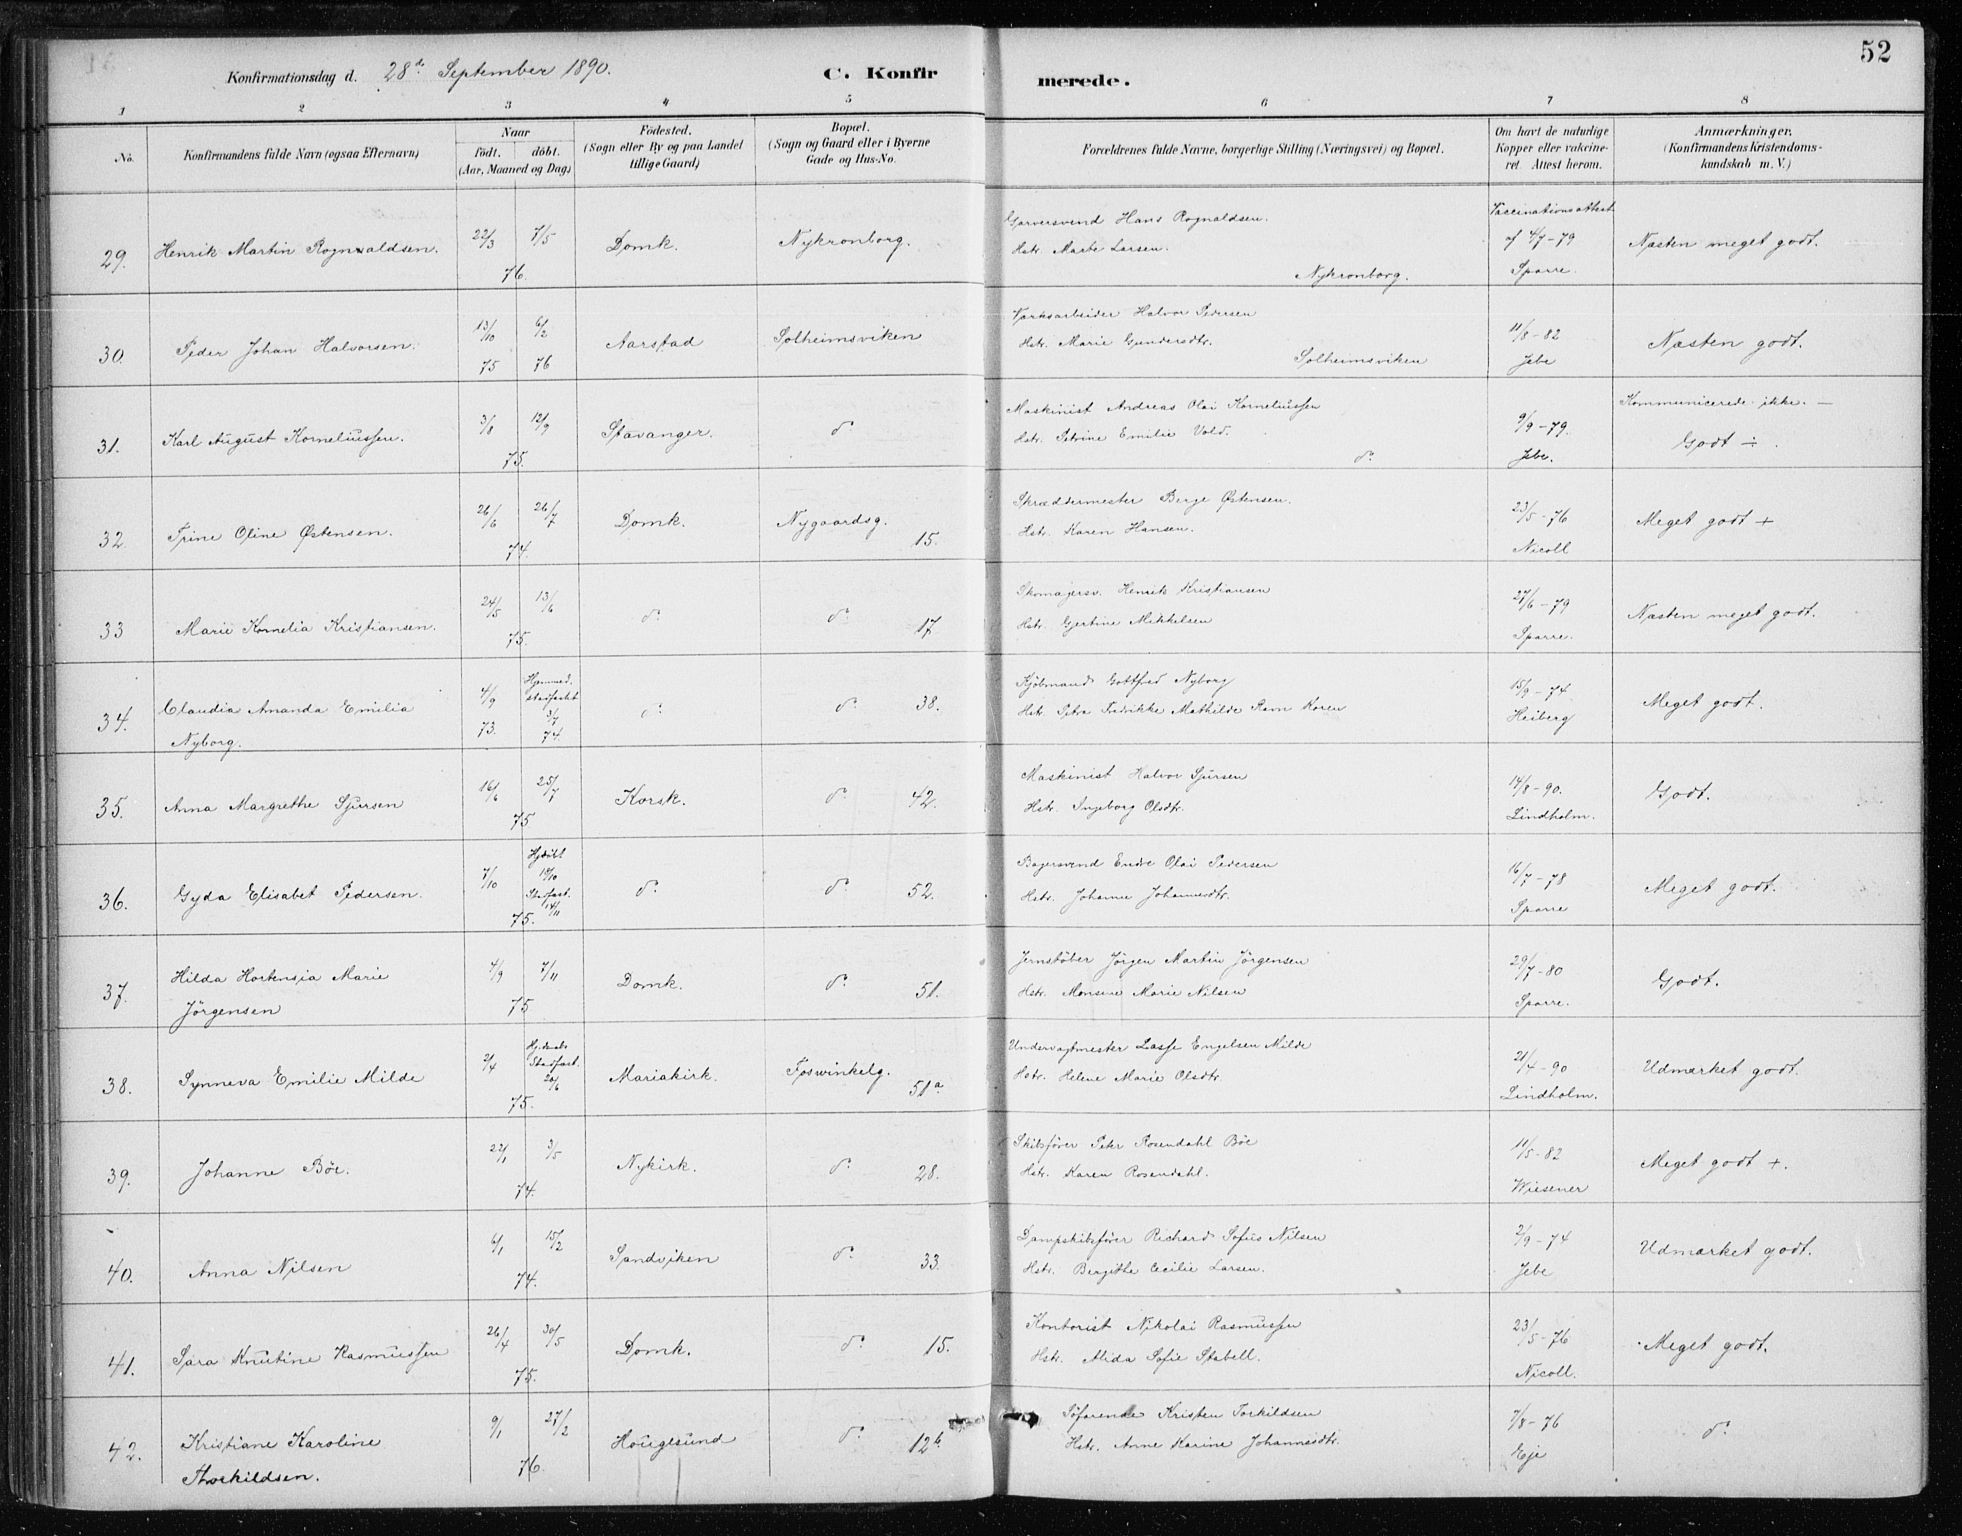 52
Konfirmationsdag d. 28de September 1890. C. Konfirmerede.
1 2 3 4 5 6 7 8
No. Konfirmandens fulde Navn (ogsaa Efternavn) Naar født. døbt. (Aar, Maaned og Dag) Fødested. (Sogn eller By og paa Landet tillige Gaard) Bopæl. (Sogn og Gaard eller i Byerne Gade og Hus-No. Forældrenes fulde Navne, borgerlige Stilling (Næringsvei) og Bopæl. Om havt de naturlige Kopper eller vakcineret. Attest herom. Anmærkninger. (Konfirmandens Kristendomskundskab m. V.)
29. Henrik Martin Rognvaldsen. 22/3 7/5 76. Domk. Nykronborg. Garversvend Hans Rognaldsen. Vaccinationsattest
Hstr. Marte Larsen. Nykronborg. af 4/7-79 Sparre. Næsten meget godt.
30. Peder Johan Halvorsen. 13/10 75 6/2 76 Aarstad Solheimsviken Værksarbeider Halvor Pedersen
Hstr. Marie Gundersdtr. Solheimsviken 11/8-82 Jebe Næsten godt.
31. Karl August Korneliussen. 3/8 12/9 75. Stavanger. do Maskinist Andreas Olai Korneliussen
Hstr. Petrine Emilie Vold. do 9/9-79. Jebe. Kommunicerede ikke. — Godt ÷.
32. Trine Oline Østensen. 26/6 26/7 74. Domk. Nygaardsg. 15. Skræddermester Berge Østensen.
Hstr. Karen Hansen. 23/5-76 Nicoll Meget godt +
33 Marie Kornelia Kristiansen. 24/5 13/6 75. do do 17 Skomagersv. Henrik Kristiansen
Hstr. Gjertine Mikkelsen 27/6-79 Sparre. Næsten meget godt.
34. Claudia Amanda Emilia Nyborg. 4/9 73. Hjemmed. stadfæstet 3/7 74. do do 38. Kjøbmand Gottfred Nyborg
Hstr. Petra Fredrikke Mathilde Ravn Koren 15/9-74 Heiberg Meget godt.
35. Anna Margrethe Sjursen 16/6 25/7 75 Korsk. do 42. Maskinist Halvor Sjursen
Hstr. Ingeborg Olsdtr. 14/8-90. Lindholm. Godt.
36. Gyda Elisabet Pedersen. 7/10 Hjdöbt 18/10 Stadfæst. 14/11 75. do do 52. Bagersvend Endre Olai Pedersen
Hstr. Johanne Johannesdtr. 16/7-78 Sparre Meget godt.
37. Hilda Hortensia Marie Jörgensen 4/9 7/11 75. Domk. do 51. Jernstøber Jörgen Martin Jörgensen
Hstr. Monsine Marie Nilsen 29/7-80 Sparre. Godt.
38. Synneva Emilie Milde 2/4 Stadfæst. 20/6 75. Mariakirk. Fosswinkelg. 51a Undervagtmester Lasse Engelsen Milde
Hstr. Helene Marie Olsdtr. 21/4-90 Lindholm. Udmærket godt.
39. Johanne Böe. 22/1 3/5 74. Nykirk. do 28. Skibsfører Peter Rosendahl Böe
Hstr. Karen Rosendahl. 11/5-82 Wiesener Meget godt +.
40. Anna Nilsen 6/1 15/2 74. Sandviken do 33. Dampskibsfører Richard Sofus Nilsen
Hstr. Bergithe Cecilie Larsen. 2/9-74 Jebe Udmærket godt.
41. Sara Knutine Rasmussen 26/4 30/5 75. Domk. do 15. Kontorist Nikolai Rasmussen
Hstr. Alida Sofie Stabell. 23/5-76 Nicoll. Meget godt.
42. Kristiane Karoline Thorkildsen. 9/1 27/2 76. Hougesund do 12b. Søfarende Kristen Torkildsen
Hstr. Anne Karine Johannesdtr. 7/8-76 Eje do